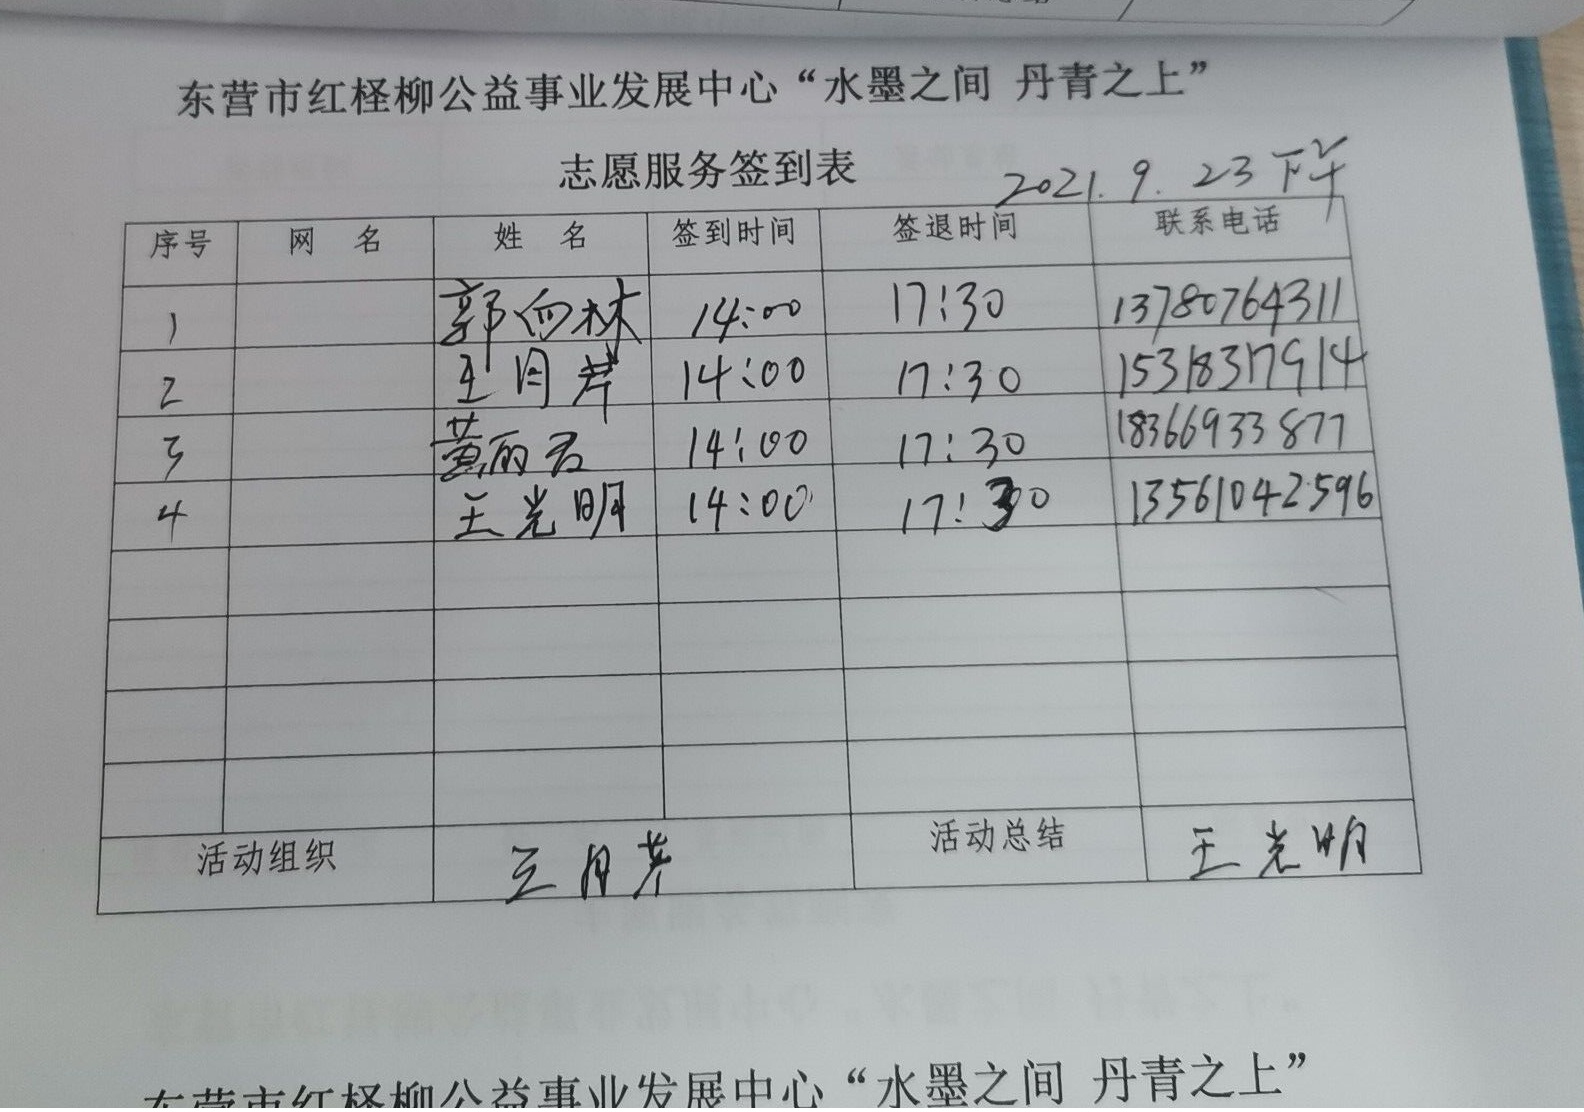 东营市红柽柳公益事业发展中心“水墨之间 丹青之上”
志愿服务签到表 2021.9.23下午
序号 网 名 姓 名 签到时间 签退时间 联系电话
1 郭向林 14:00 17:30 13780764311
2 王月芹 14:00 17:30 15318317914
3 黄丽君 14:00 17:30 18366933877
4 王光明 14:00 17:30 13561042596
活动组织 王月芹 活动总结 王光明
东营市红柽柳公益事业发展中心“水墨之间 丹青之上”